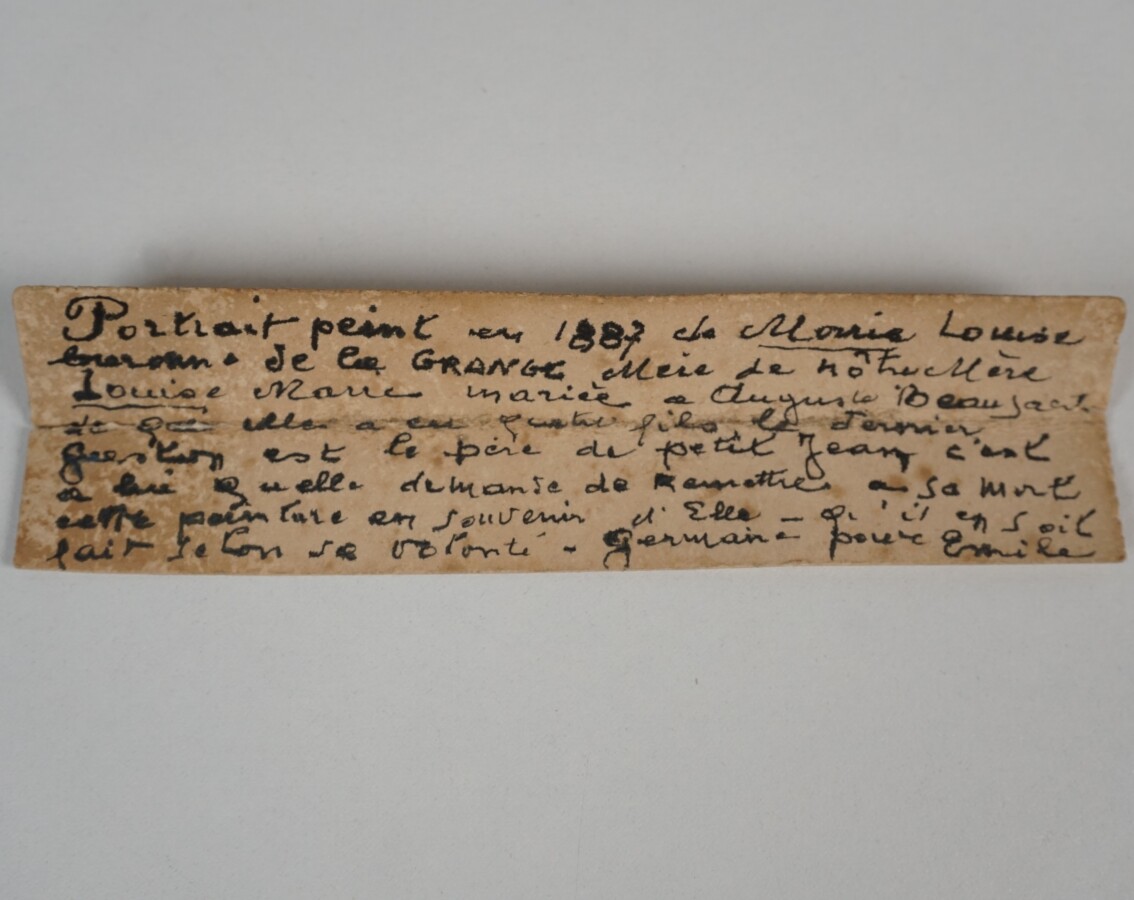 Portrait peint en 1887 de Marie Louise
baronne de la GRANGE Mère de nôtre Mère
Louise Marie mariée a Auguste
de qui elle a eu quatre fils le dernier
Gaston est le père de petit Jean c'est
a lui quelle demande de Remettre a sa mort
cette peinture en souvenir d'Elle - qu'il en soit
fait selon sa volonté - Germaine pour Emile